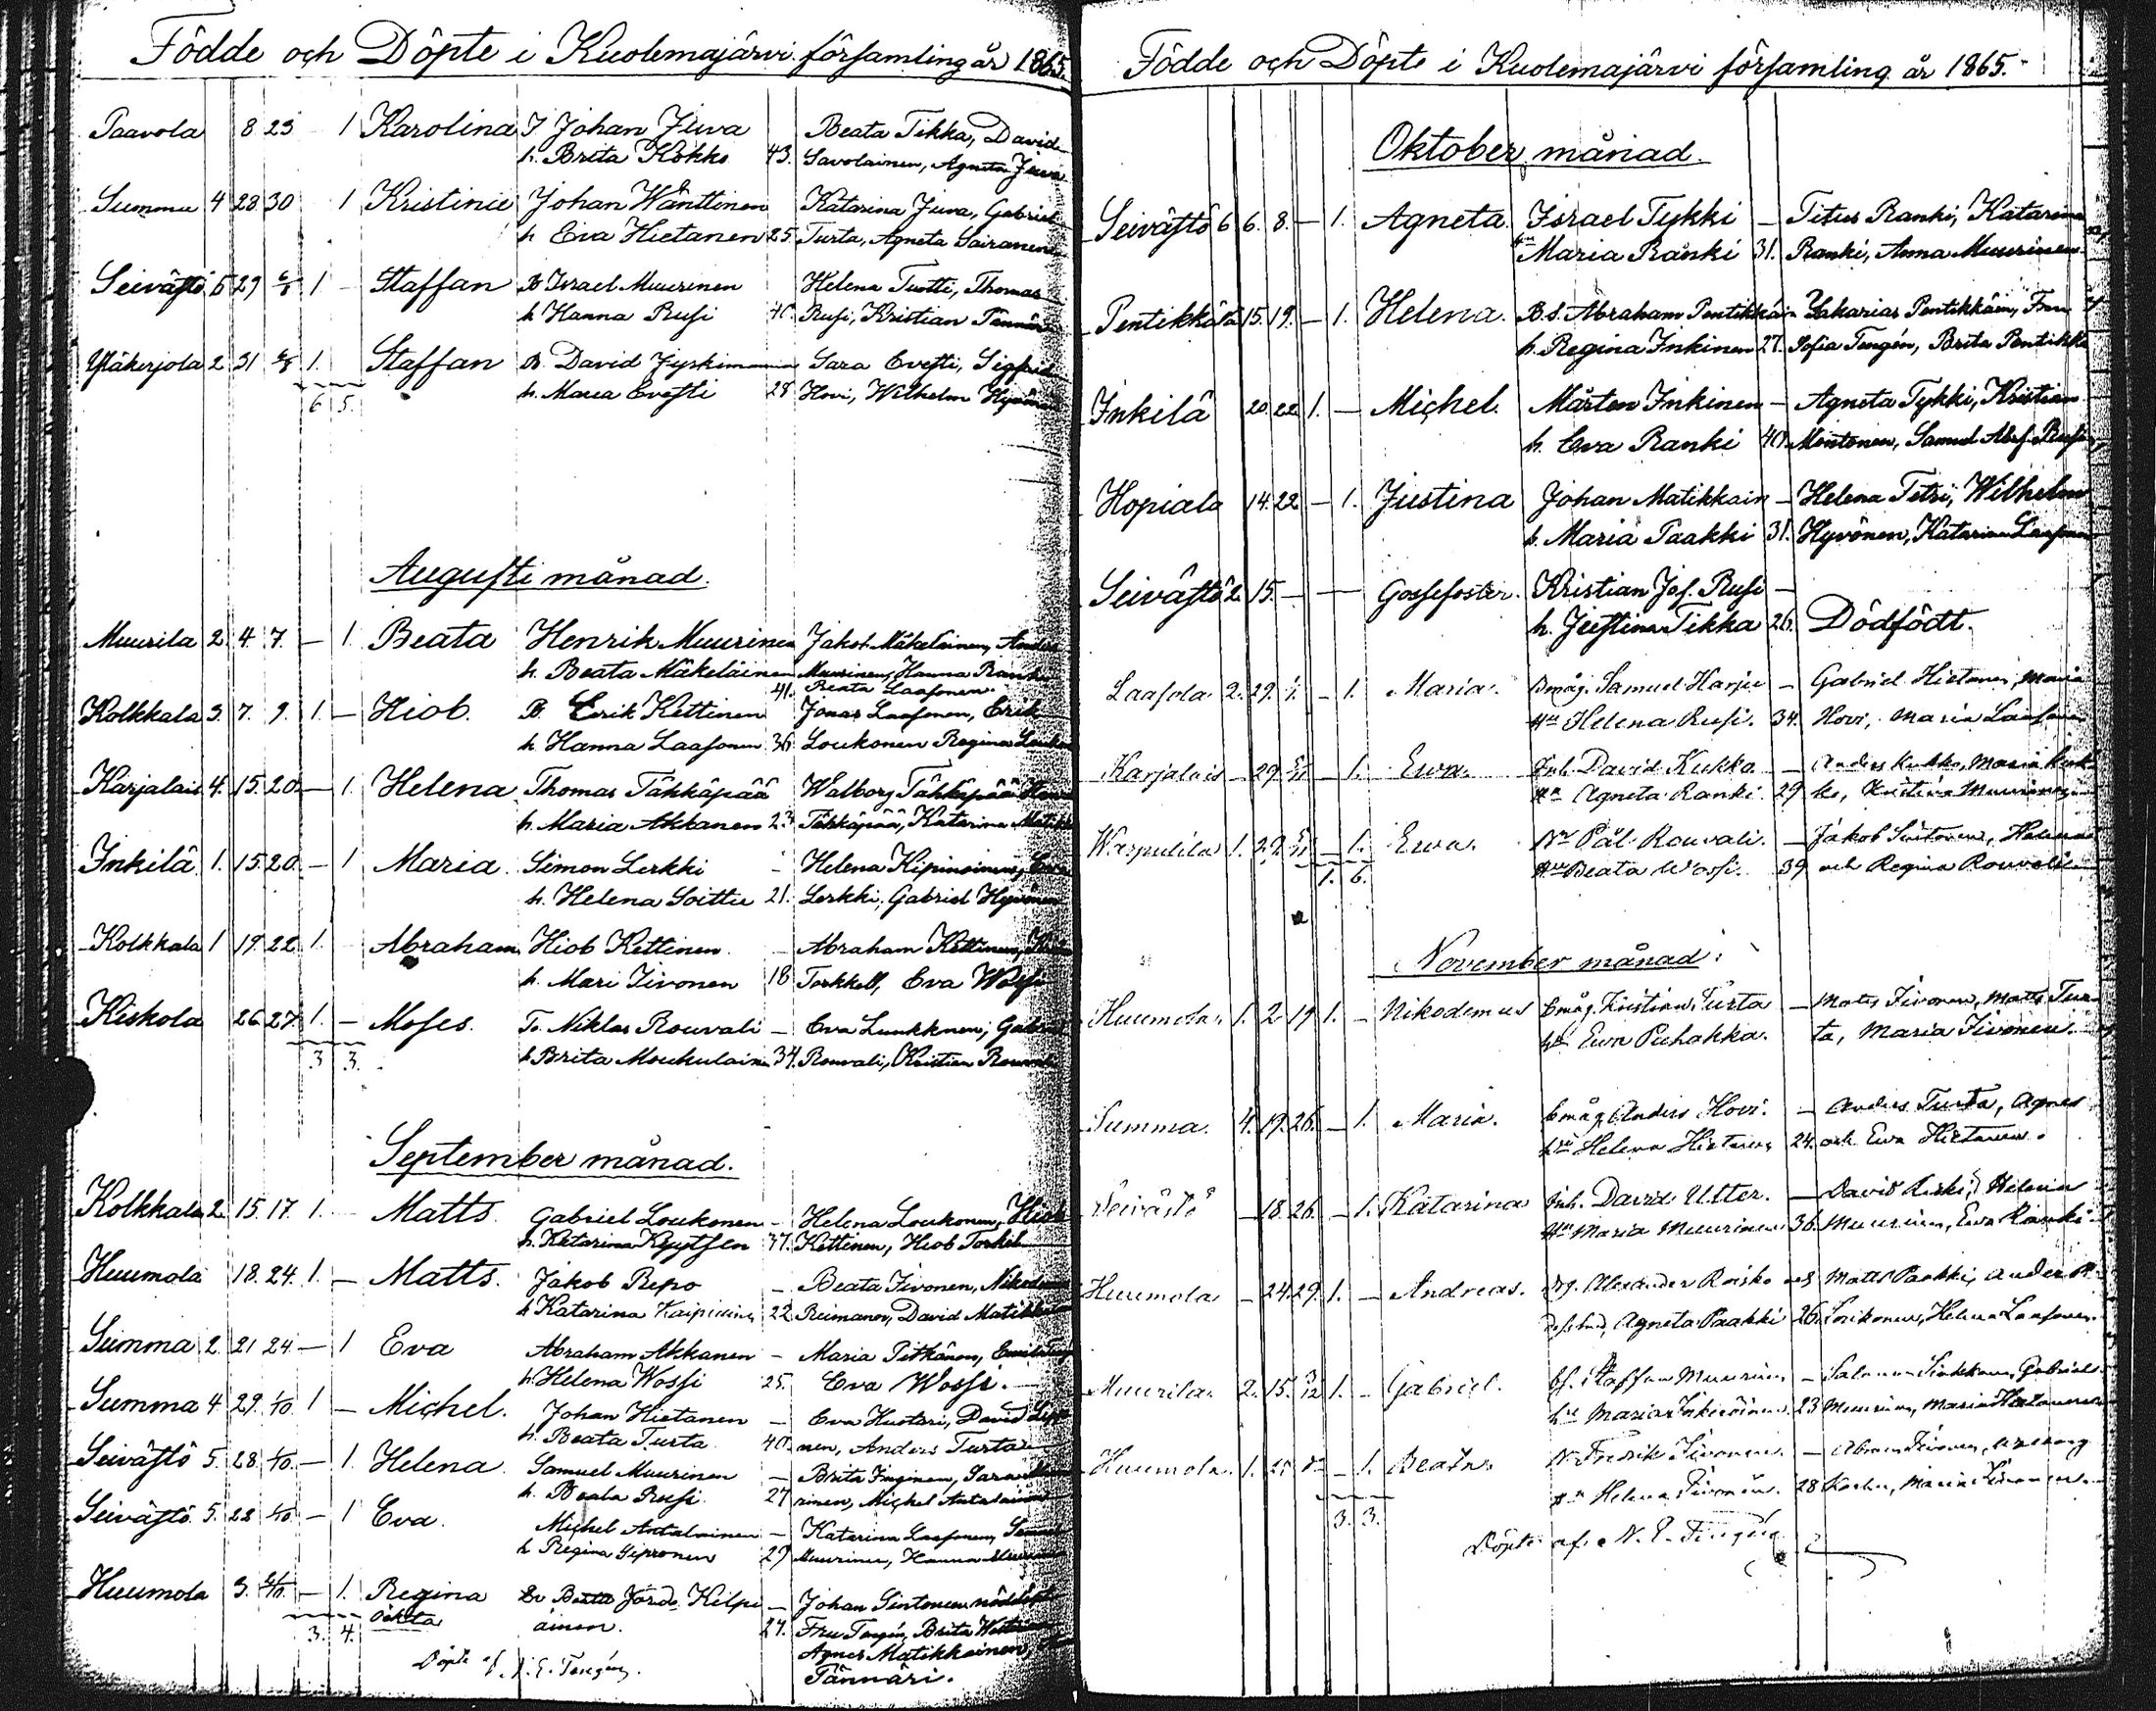 Födde och Döpte i Kuolemajärvi församling år 1865.
Paavola 8 23 1 Karolina J Johan Juva Beata Tikka, David
h. Brita Kokko 43. Savolainen, Agneta Juva
Summa 4 28 30 1 Kristina Johan Wänttinen Katarina Juva, Gabriel
h Eva Hietanen 25 Turta, Agneta Sairanen
Seivästö 5 29 6/8 1 - Staffan B Israel Muurinen Helena Tuotti, Thomas
h Hanna Rusi 40. Rusi, Kristian Tännäri
Yläkirjola 2 31 6/8 1. Staffan B. David Jyskimann Sara Evesti, Sigfrid
6 5. h. Maria Evesti 28 Hovi, Wilhelm
Augusti månad.
Muurila 2. 4. 7. - 1. Beata Henrik Muurinen Jakob Mäkeläinen, Anders
h. Beata Mäkeläinen Muurinen, Hanna Ranki
41. Beata Laasonen
Kolkkala 3. 7. 9. 1. - Hiob. B. Erik Kettinen Jonas Laasonen, Erik
h. Hanna Laasonen 36 Loukonen Regina
Karjalais 4. 15. 20. - 1. Helena Thomas Täkkäpää Walborg Täkkäpää
h. Maria Akkanen 23 Täkkäpää, Katarina
Inkilä 1. 15 20 - 1 Maria. Simon Lerkki - Helena Kipinoinen, Eva
h. Helena Soittu 21. Lerkki, Gabriel Hyvönen
Kolkkala 1 19. 22. 1. Abraham Hiob Kettinen - Abraham Kettinen,
h. Mari Iivonen 18 Torkkell, Eva Wossi
Kiskola 26 27. 1. - Moses. To. Niklas Rouvali - Eva Lunkknen,
3 3. h Brita Moukulain 34. Rouvali, Kristian
September månad.
Kolkkala 2. 15. 17. 1. - Matts. Gabriel Loukonen - Helena Loukonen, Hiob
h. Katarina Kyytsen 37. Kettinen, Hiob Torkkel
Huumola 18. 24. 1. - Matts. Jakob Repo - Beata Iivonen, Nikodemus
h Katarina Kaipiainen 22 Reimanen, David
Summa 2. 21 24. - 1 Eva Abraham Akkanen - Maria Pitkänen,
h. Helena Wossi 25. Eva Wossi. -
Summa 4 29. 1/10 1 - Michel. Johan Hietanen - Eva Huotari, David
h. Beata Turta. 40. nen, Anders Turta
Seivästö 5. 28 1/10. - 1. Helena. Samuel Muurinen - Brita Inginen, Sara
h. Beata Rusi. 27 rinen, Michel Antalainen
Seivästö 5. 28 1/10 - 1 Eva. Michel Antalainen - Katarina Laasonen, Samuel
h Regina Sipronen 29 Muurinen, Hanna
Huumola 3. - 1. Regina Jörd. Kilpi - Johan Sintonen nöddöpt
oäkta äinen. 24. Fru Tengén, Brita
3. 4. Agnes Matikkainen,
Tännäri.
Döpte af N. E. Tengén.
Födde och Döpte i Kuolemajärvi församling år 1865.
Oktober månad.
Seivästö 6 6. 8. - 1. Agneta. Israel Tykki - Titus Ranki, Katarina
Maria Ranki 31. Ranki, Anna Muurinen
Pentikkälä 15. 19. - 1. Helena. B.S. Abraham Pentikkäin - Zakarias Pentikkäin, Fru
h. Regina Inkinen 27. Sofia Tengén, Brita Pentikkä
Inkilä 20. 22 1. - Michel. Mårten Inkinen - Agneta Tykki, Kristian
h. Eva Ranki 40. Montonen, Samuel Abr. Rusi
Hopiala 14. 22 - 1. Justina Johan Matikkain - Helena Tetri, Wilhelm
h. Maria Paakki 31. Hyvönen, Katarina Laasonen
Seivästö 2. 15. - - Gossefoster. Kristian Jos. Rusi -
h. Justina Tikka 26. Dödfödt.
Laasola 2. 29. - 1. Maria. Bmåg. Samuel Harju - Gabriel Hietanen, Maria
Hu Helena Rusi. 34. Hovi, Maria Laasonen
Karjalais - 29. 5/11 - 1. Ewa. Inh. David Kukko - Anders Kukko, Maria Kuk
Hu Agneta Ranki. 29 ko, Kristina Muurinen
Warpulila 1. 29. 5/11 - 1. Ewa. Pål Rouvali. - Jakob Sintonen, Helena
1. 6. Hu Beata Wossi. 39 och Regina Rouvali
November månad.
Huumola. 1. 2 19 1. - Nikodemus Bmåg. Kristian Turta - Matts Iivonen, Matts Tur
Ewa Puhakka. ta, Maria Iivonen.
Summa. 4. 19. 26. - 1. Maria. Bmåg. Anders Hovi. - Anders Turta, Agnes
Helena Hietanen 24. och Ewa Hietanen.
Seivästö - 18. 26. - 1. Katarina Inh. David Utter. - David Ranki, Helena
Hu Maria Muurinen 36. Muurinen, Ewa Ranki
Huumola - 24. 29. 1. - Andreas. Alexander Roisko och Matts Paakki, Anders
Agneta Paakki 26 Loukonen, Helena Laasonen.
Muurila. 2. 15. 3/12 1. - Gabriel. Staffan Muurinen - Gabriel
Maria Inkeröinen 23 Muurinen, Maria Hietanen
Huumola. 1. 25 - 1. Beata. Fredrik Iivonen. - Abram Iivonen,
Hu Helena Iivonen. 28 Maria Iivonen.
3. 3.
Döpte af N. E. Tengén